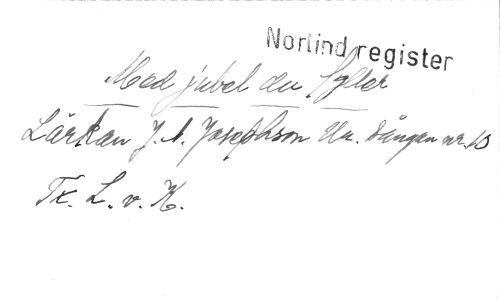 Norlind register
Med jubel du fyller
Lärkan J. A. Josephson Ur. Sångan nr. 10
Tx. L. v. K.